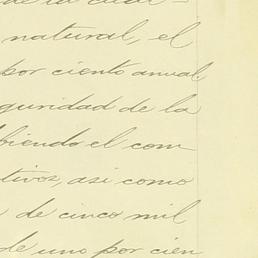 de la cual-
natural, el
por ciento anual,
guridad de la
biendo el com-
tivos, asi como
de cinco mil
de uno por cien